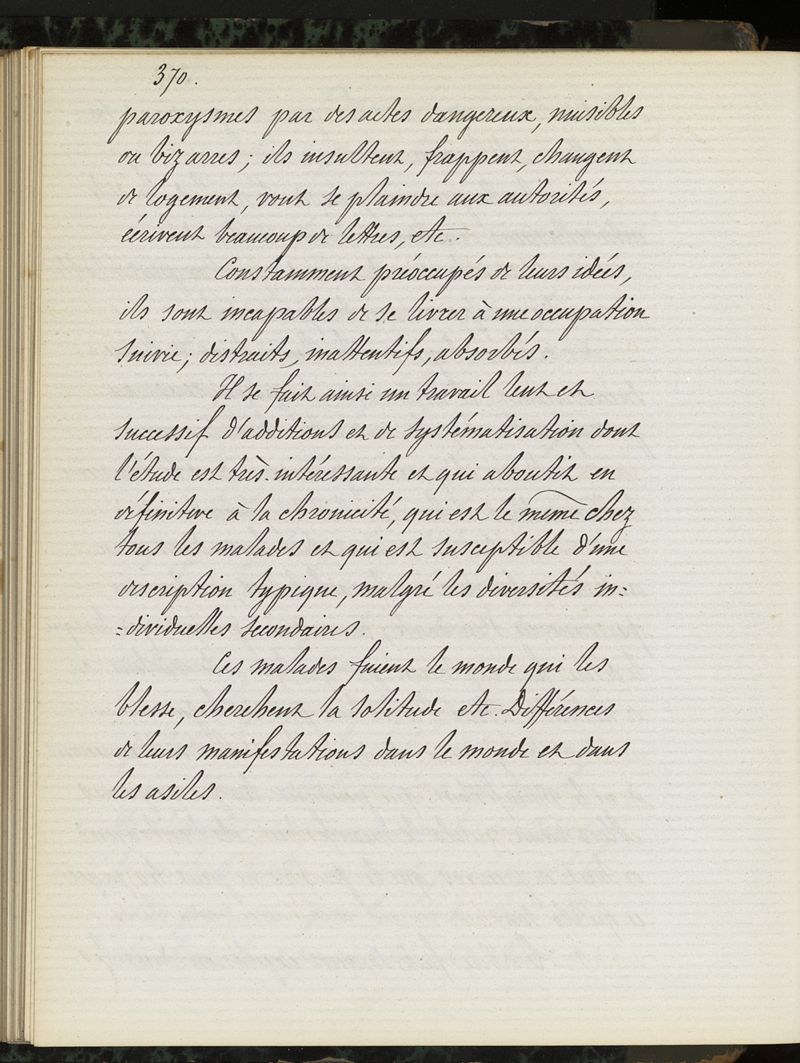 370.
paroxysmes par des actes dangereux, nuisibles
ou bizarres ; ils insultent, frappent, changent
de logement, vont se plaindre aux autorités,
écrivent beaucoup de lettres, etc.
Constamment préoccupés de leurs idées,
ils sont incapables de se livrer à une occupation
suivie ; distraits, inattentifs, absorbés.
Il se fait ainsi un travail lent et
successif d'additions et de systématisation dont
l'étude est très-intéressante et qui aboutit en
définitive à la chronicité, qui est le même chez
tous les malades et qui est susceptible d'une
description typique, malgré les diversités in=
=dividuelles secondaires.
Ces malades fuient le monde qui les
blesse, cherchent la solitude etc. Différences
de leurs manifestations dans le monde et dans
les asiles.